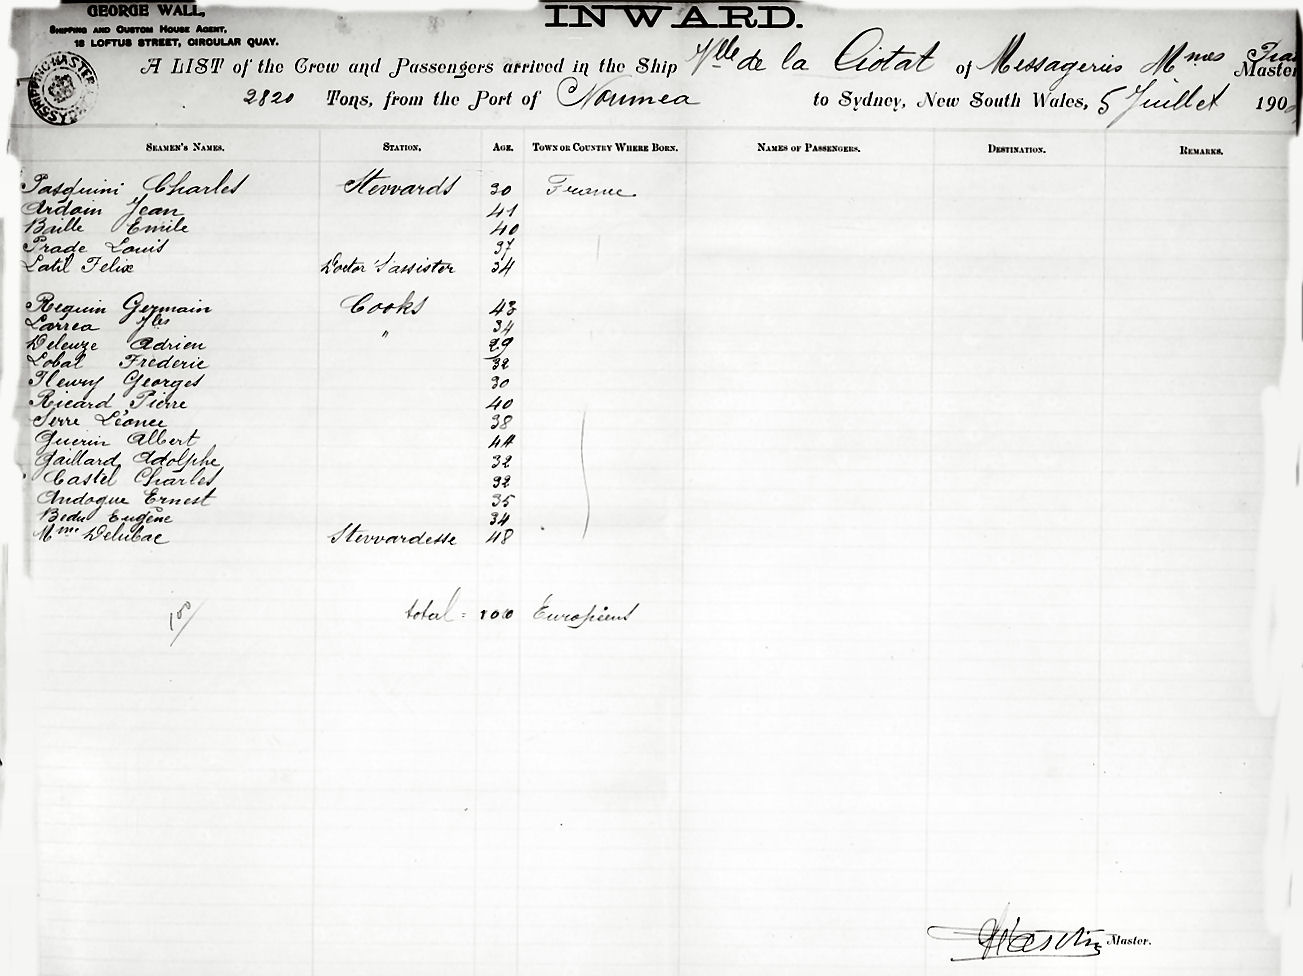 GEORGE WALL,
SHIPPING AND CUSTOM HOUSE AGENT,
18 LOFTUS STREET, CIRCULAR QUAY.
INWARD.
A LIST of the Crew and Passengers arrived in the Ship Ville de la Ciotat of Messageries Mmes
Master
2820 Tons, from the Port of Noumea to Sydney, New South Wales, 5 Juillet 190
SEAMEN'S NAMES. STATION. AGE. TOWN OR COUNTRY WHERE BORN. NAMES OF PASSENGERS. DESTINATION. REMARKS.
Pasquini Charles Stewards 30 France
Ardoin Jean 41
Baille Emile 40
Prade Louis 37
Latil Felix 34
Requin Germain Cooks 43
Larrea Jles " 34
Deleuze Adrien 29
Lobal Frederic 32
Fleury Georges 30
Ricard Pierre 40
Serre Léonce 38
Guerin Albert 44
Gaillard Adolphe 32
Castel Charles 32
Andogue Ernest 35
Bedu Eugène 34
Mme Delubac Stewardesse 48
100 total = 100 Européens
Master.